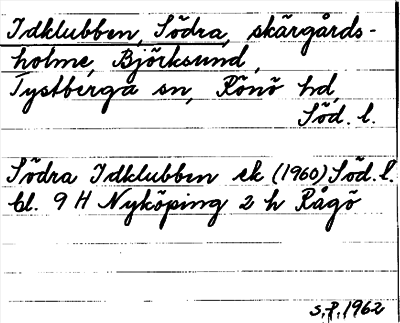 Idklubben, Södra, skärgårds-
holme, Björksund,
Tystberga sn, Rönö hd,
Söd. l.
Södra Idklubben ek (1960) Söd. l.
bl. 9 H Nyköping 2 h Rågö
S.P. 1962